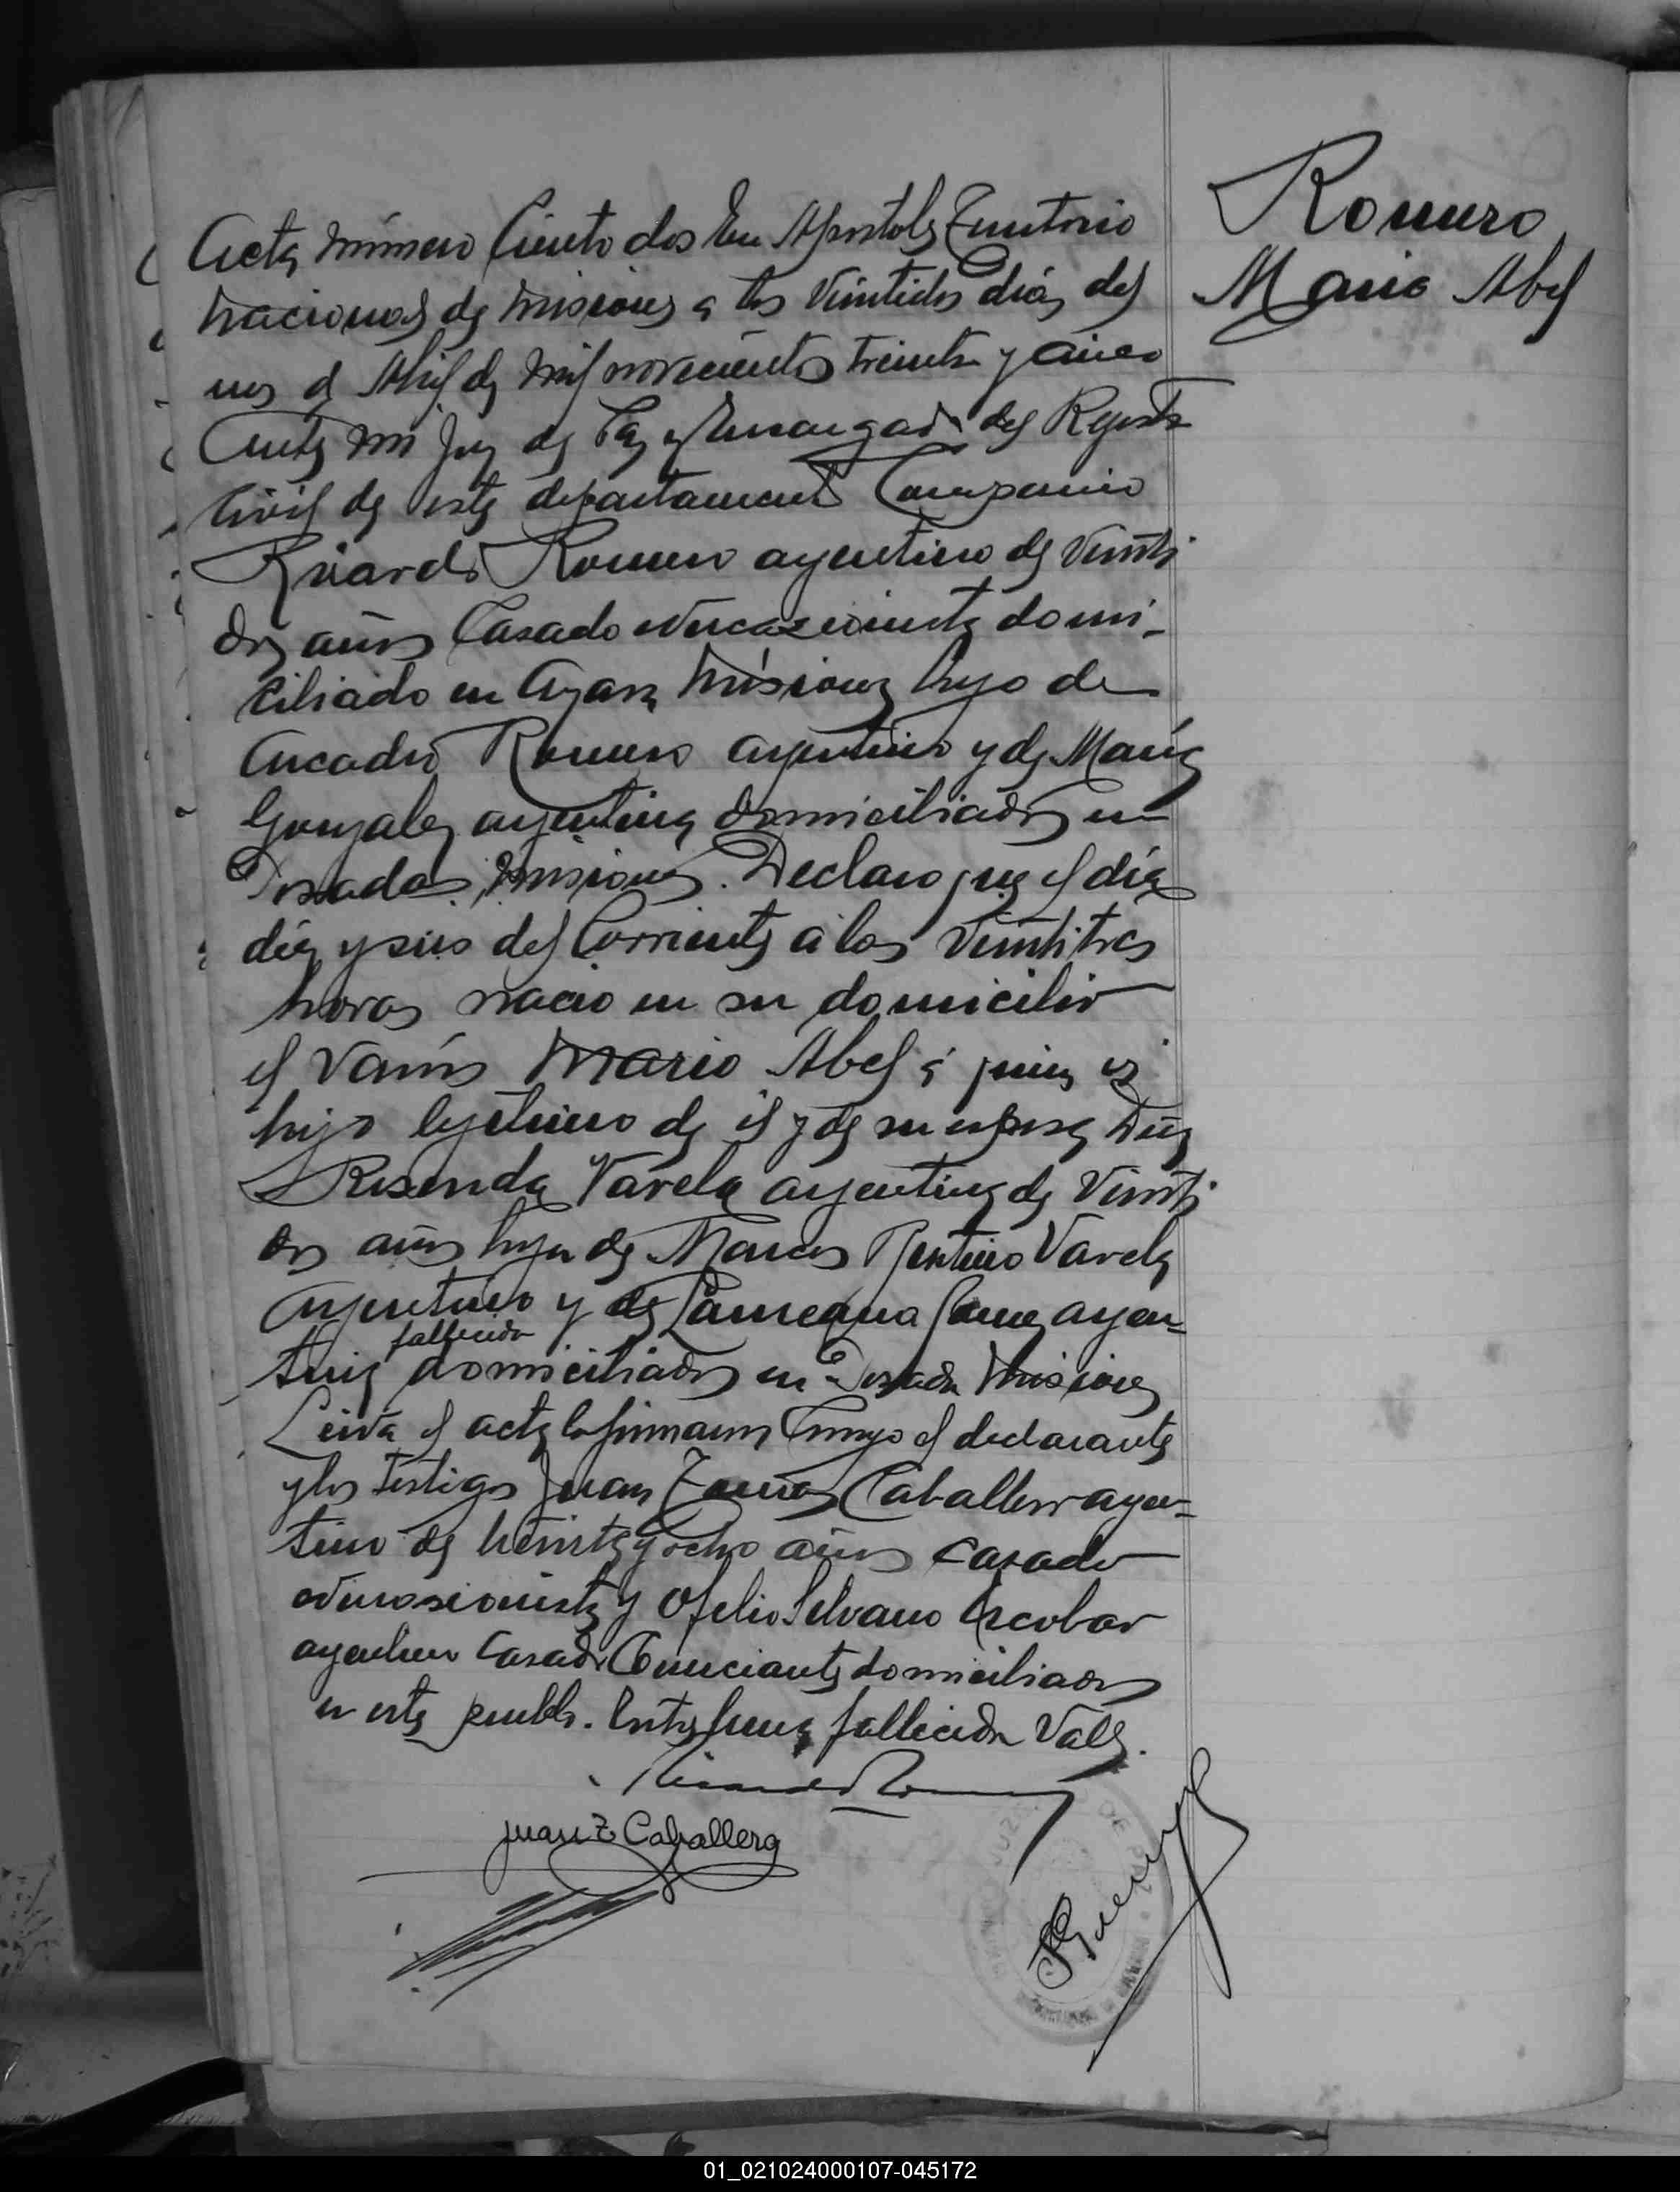 Romero
Mario Abel
Acta número Ciento dos En Apostoles Territorio
Nacional de Misiones a los Veintidos días del
mes de Abril de mil novecientos treinta y cinco
Ante mi Juez de Paz y Encargado del Registro
Civil de este departamento Comparecio
Ricardo Romero argentino de Veinti
dos años Casado domi-
ciliado en Azara Misiones hijo de
Arcadio Romero argentino y de María
Gonzalez argentina domiciliados en
Posadas Misiones. Declaro que el día
diez y seis del Corriente a las Veintitres
horas nacio en su domicilio
el Varón Mario Abel a quien es
hijo legitimo de él y de su esposa
Rosenda Varela argentina de Veinti
dos años hija de Marcos Varela
argentino y de argen-
tina fallecida domiciliados en Posadas Misiones
Leida el acta la firmaron Conmigo el declarante
y los testigos Juan Caballero argen-
tino de treinta y ocho años casado
y Ofelio Silvano Escobar
argentino Casado Comerciante domiciliados
en este pueblo. fallecida Vale.
Juan Z Caballero
JUZ
DE
01_021024000107-045172